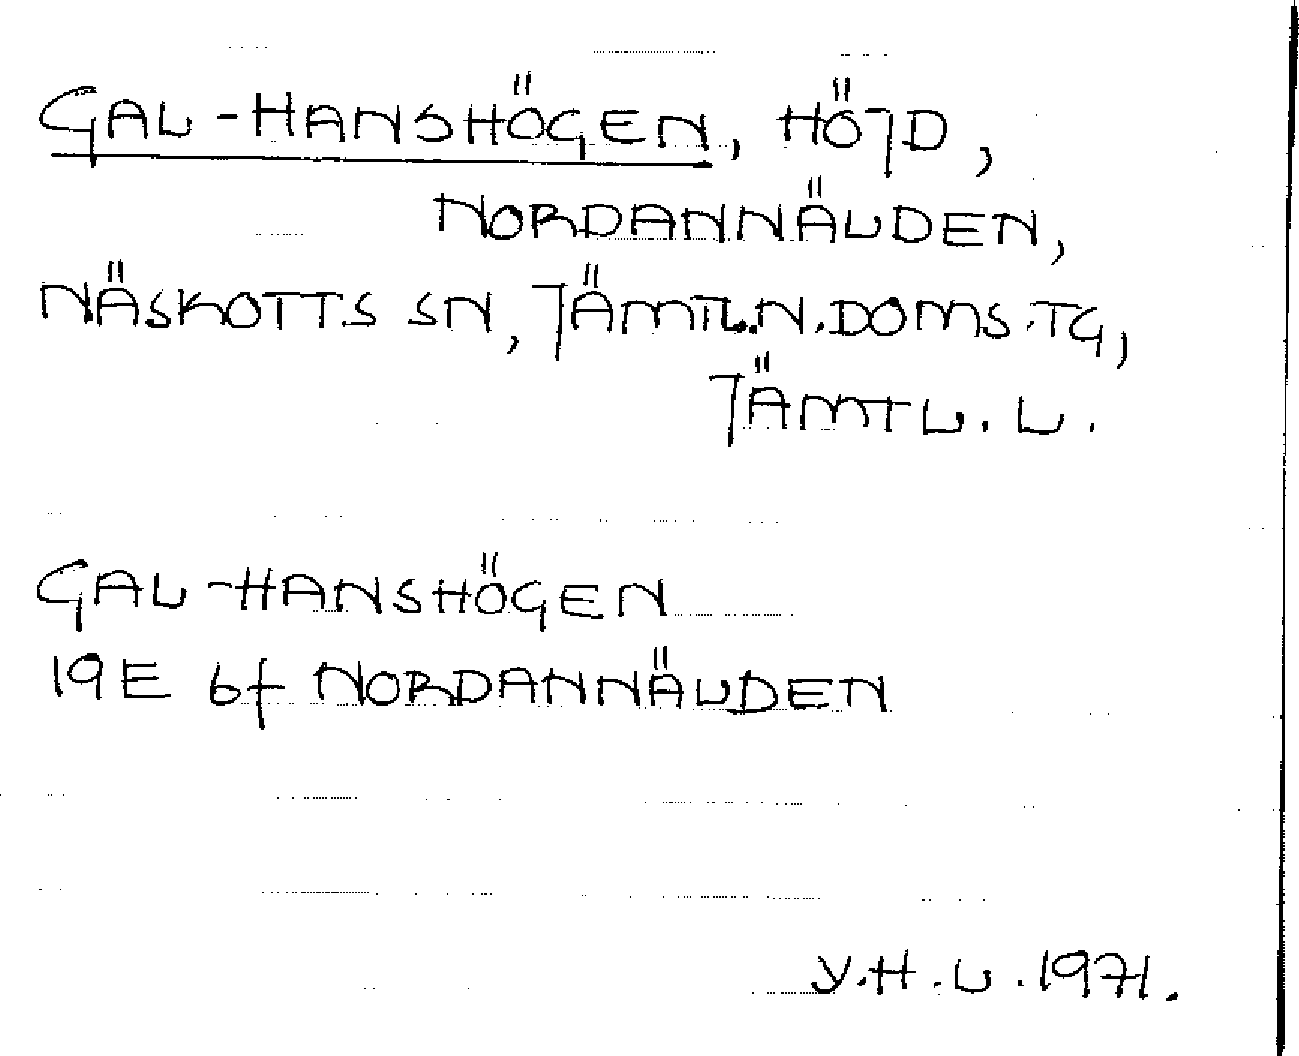 GAL-HANSHÖGEN, HÖJD,
NORDANNÄLDEN,
NÄSKOTTS SN, JÄMTL.N.DOMS.TG,
JÄMTL. L.
GAL-HANSHÖGEN
19E 6f NORDANNÄLDEN
Y.H.L. 1971.